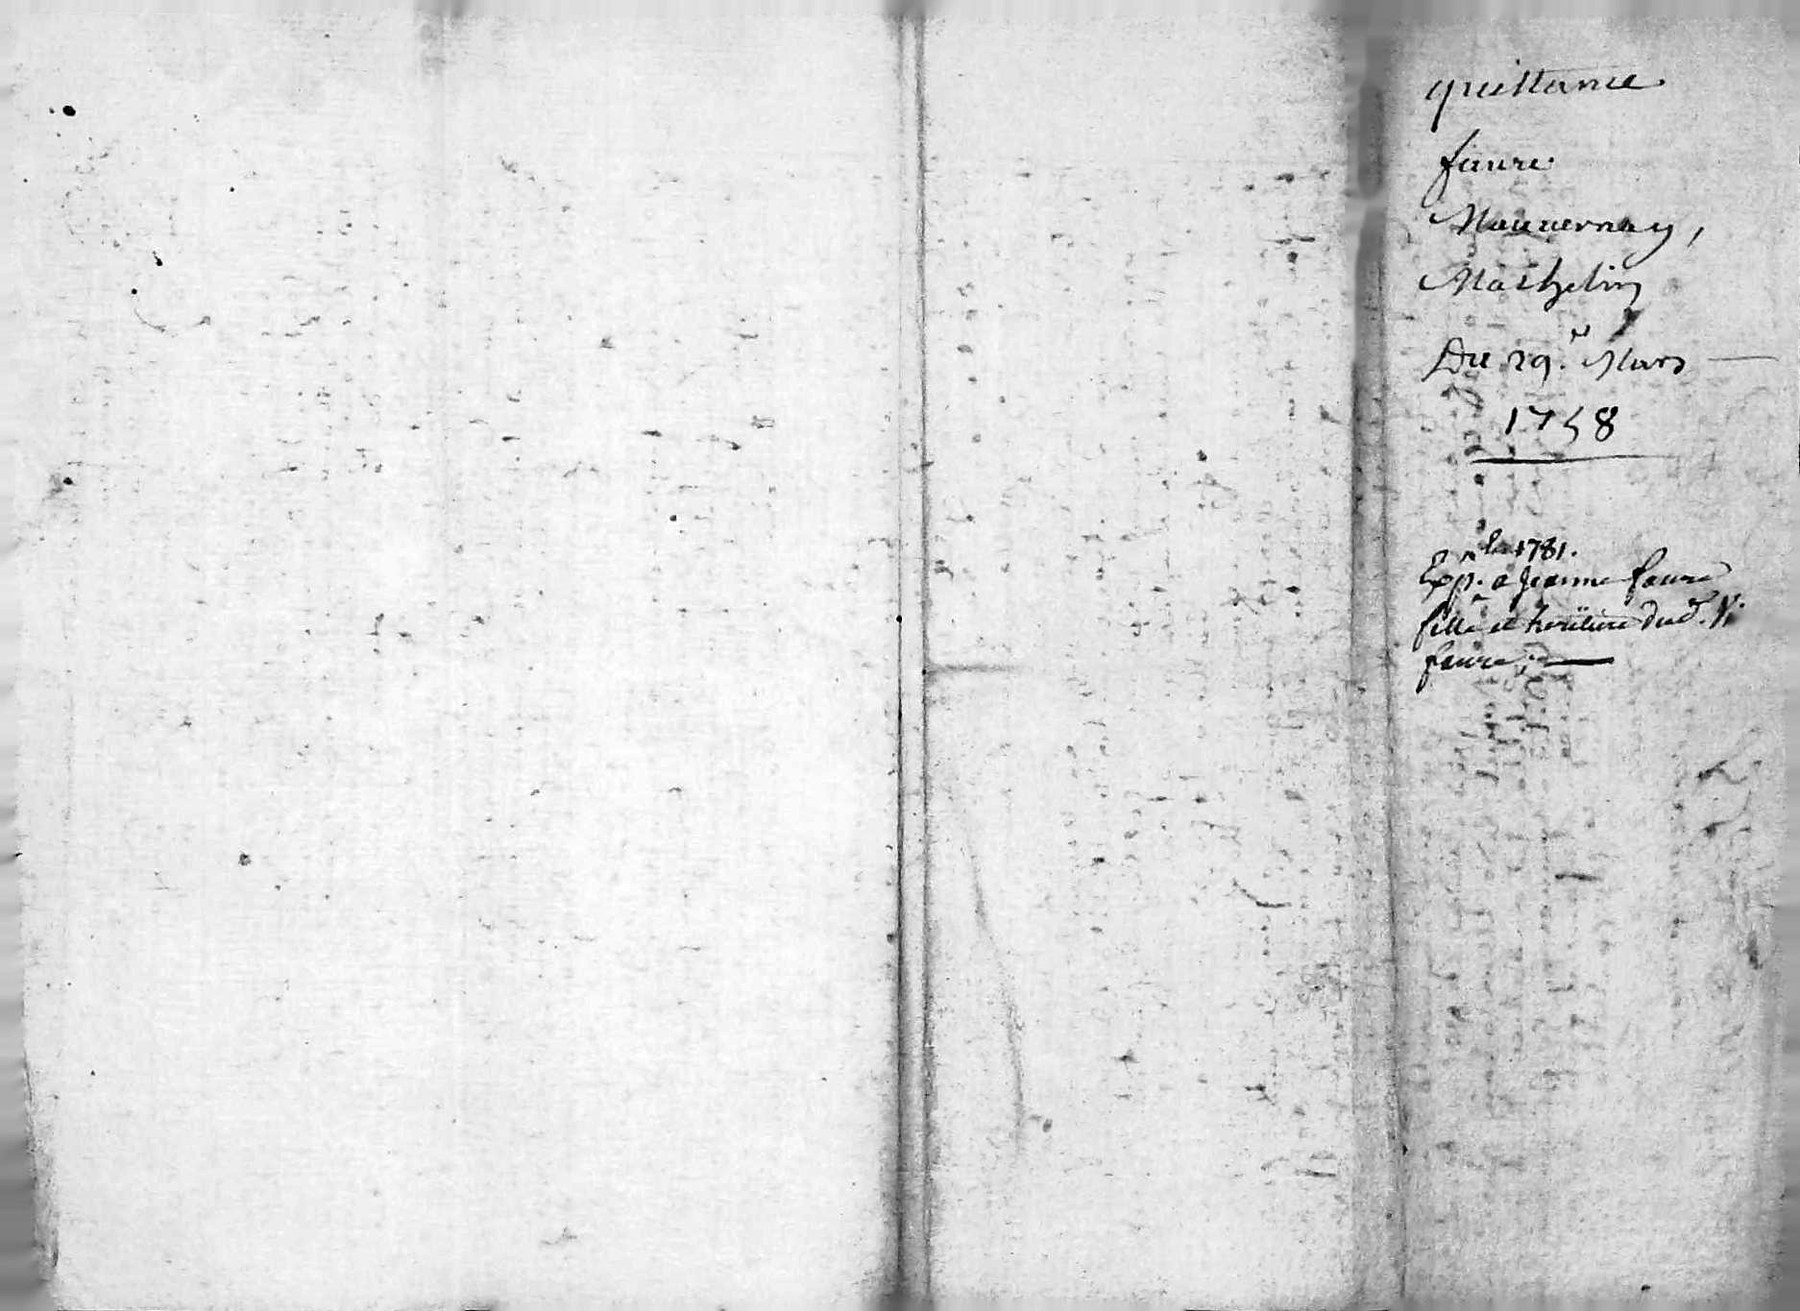 quittance
faure
Mauvernay,
Mathelin
Du 29.e Mars
1758
le 1781.
Exp.n a Jeanne faure
fille et heritiere dud.t
faure.